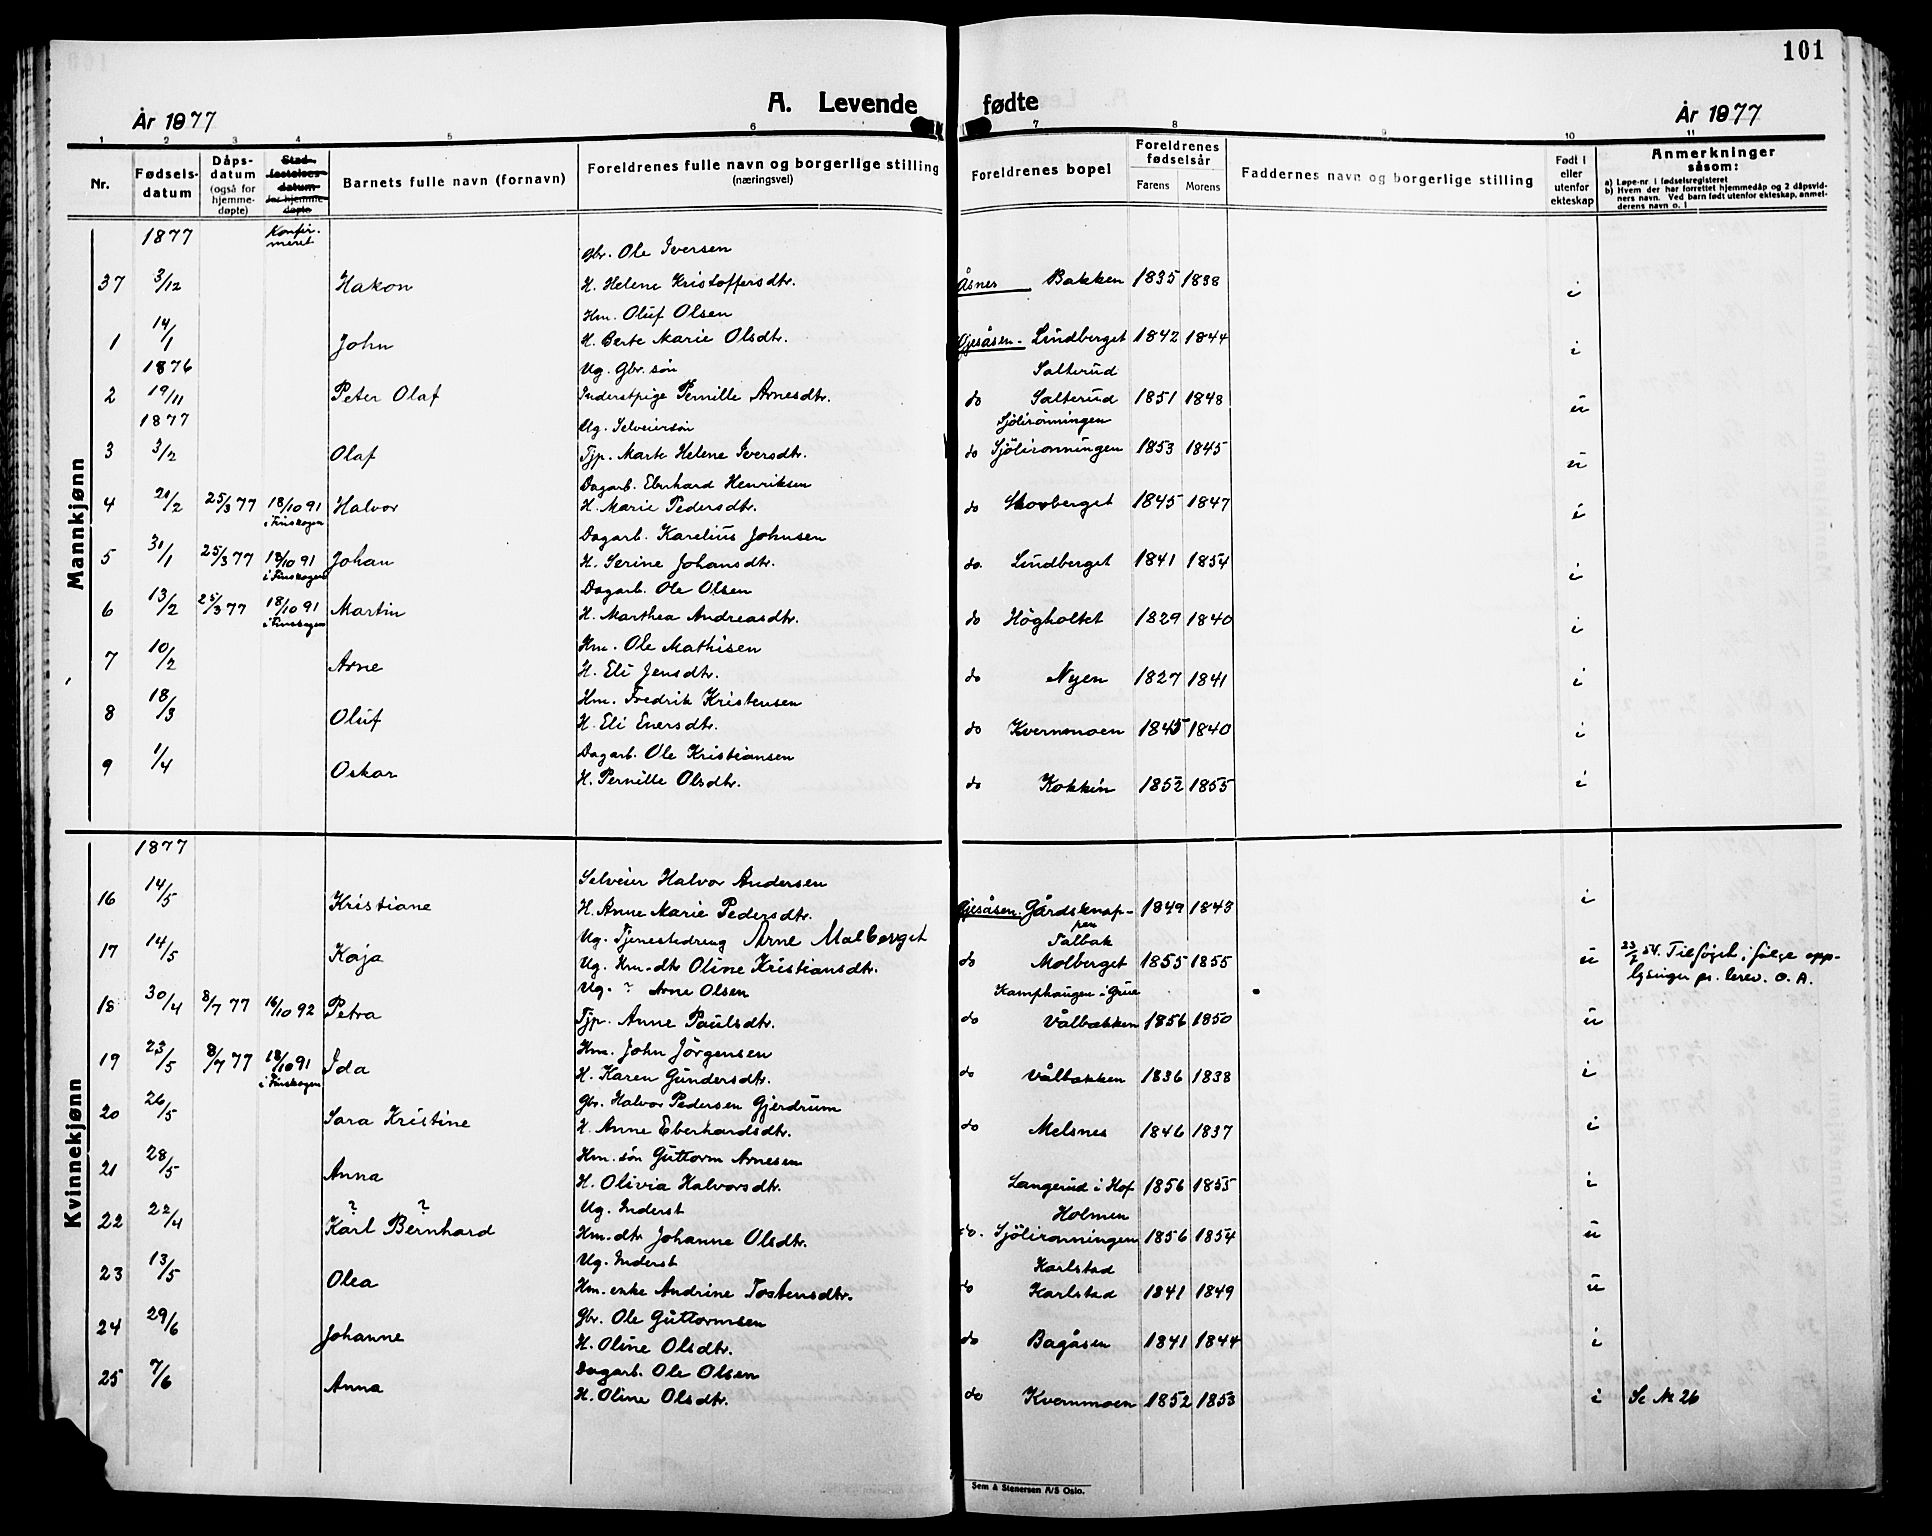 101
A. Levende fødte
År 1877
År 1877
1 2 3 4 5 6 7 8 9 10 11
Nr. Fødsels-datum Dåps-datum (også for hjemme-døpte) Stad-festelses-datum for hjemme-døpte Barnets fulle navn (fornavn) Foreldrenes fulle navn og borgerlige stilling (næringsvei) Foreldrenes bopel Foreldrenes fødselsår Farens Morens Faddernes navn og borgerlige stilling Født i eller utenfor ekteskap Anmerkninger såsom:
a) Løpe-nr. i fødselsregisteret
b) Hvem der har forrettet hjemmedåp og 2 dåpsvid-
ners navn. Ved barn født utenfor ekteskap, anmel-
derens navn o. l
Mannkjønn
1877 Konfir-meret
Gbr. Ole Iversen
37 3/12 Hakon H. Helene Kristoffersdtr. Åsnes Bakken 1835 1838 i
Hm. Oluf Olsen
1 14/1 John H. Berte Marie Olsdtr. Gjesåsen - Lindberget 1842 1844 i
1876 Ug. Gbr. søn Salterud
2 19/11 Peter Olaf Inderstpige Pernille Arnesdtr. do Salterud 1851 1848 u
1877 Ug. Selveiersøn Sjölirönningen
3 3/2 Olaf Tjp. Marte Helene Iversdtr. do Sjölirönningen 1853 1845 u
Dagarb. Eberhard Henriksen
4 21/2 25/3 77 18/10 91 i Finskogen Halvor H. Marie Pedersdtr. do Skovberget 1845 1847 i
Dagarb. Karelius Johnsen
5 31/1 25/3 77 18/10 91 i Finskogen Johan H. Serine Johansdtr. do. Lindberget 1841 1854 i
Dagarb. Ole Olsen
6 13/2 25/3 77 18/10 91 i Finskogen Martin H. Marthea Andreasdtr. do Högholtet 1829 1840 i
Hm. Ole Mathisen
7 10/2 Arne H. Eli Jensdtr. do Nyen 1827 1841 i
Hm. Fredrik Kristensen
8 18/3 Oluf H. Eli Enersdtr. do Kvernmoen 1845 1840 i
Dagarb. Ole Kristiansen
9 1/4 Oskar H. Pernille Olsdtr. do Kokkin 1852 1855 i
Kvinnekjønn
1877
Selveier Halvor Andersen
16 14/5 Kristiane H. Anne Marie Pedersdtr. Gjesåsen. Gårdsknap-pen 1849 1843 i
Ug. Tjenestedreng Arne Malberget Talbak
17 14/5 Kaja Ug. Hm-dtr Oline Kristiansdtr. do Molberget 1855 1855 u 23/7 54. Tilføjet i følge opp-
lysninger pr. brev. O. A.
Ug. ? Arne Olsen Kamphaugen i Grue
18 30/4 8/7 77 16/10 92 Petra Tjp. Anne Paulsdtr. do Vålbakken 1856 1850 u
Hm. John Jörgensen
19 23/5 8/7 77 18/10 91 i Finskogen Ida H. Karen Gundersdtr. do Vålbakken 1836 1838 i
Gbr. Halvor Pedersen Gjerdrum
20 26/5 Sara Kristine H. Anne Eberhardsdtr. do Melsnes 1846 1837 i
Hm. søn Guttorm Arnesen
21 28/5 Anna H. Olivia Halvorsdtr. Langerud i Hof 1856 1855 i
? ? Ug. Inderst Holmen
22 22/4 Karl Bernhard Hm-dtr Johanne Olsdtr. do. Sjölirönningen 1856 1854 u
Ug. Inderst Karlstad
23 13/5 Olea Hm. enke Andrine Tostensdtr. do Karlstad 1841 1849 u
Gbr. Ole Guttormsen
24 29/6 Johanne H. Oline Olsdtr. do Bagåsen 1841 1844 i
Dagarb. Ole Olsen
25 7/6 Anna H. Oline Olsdtr. do Kvernmoen 1852 1853 i Se № 26
Sem & Stenersen A/S Oslo.